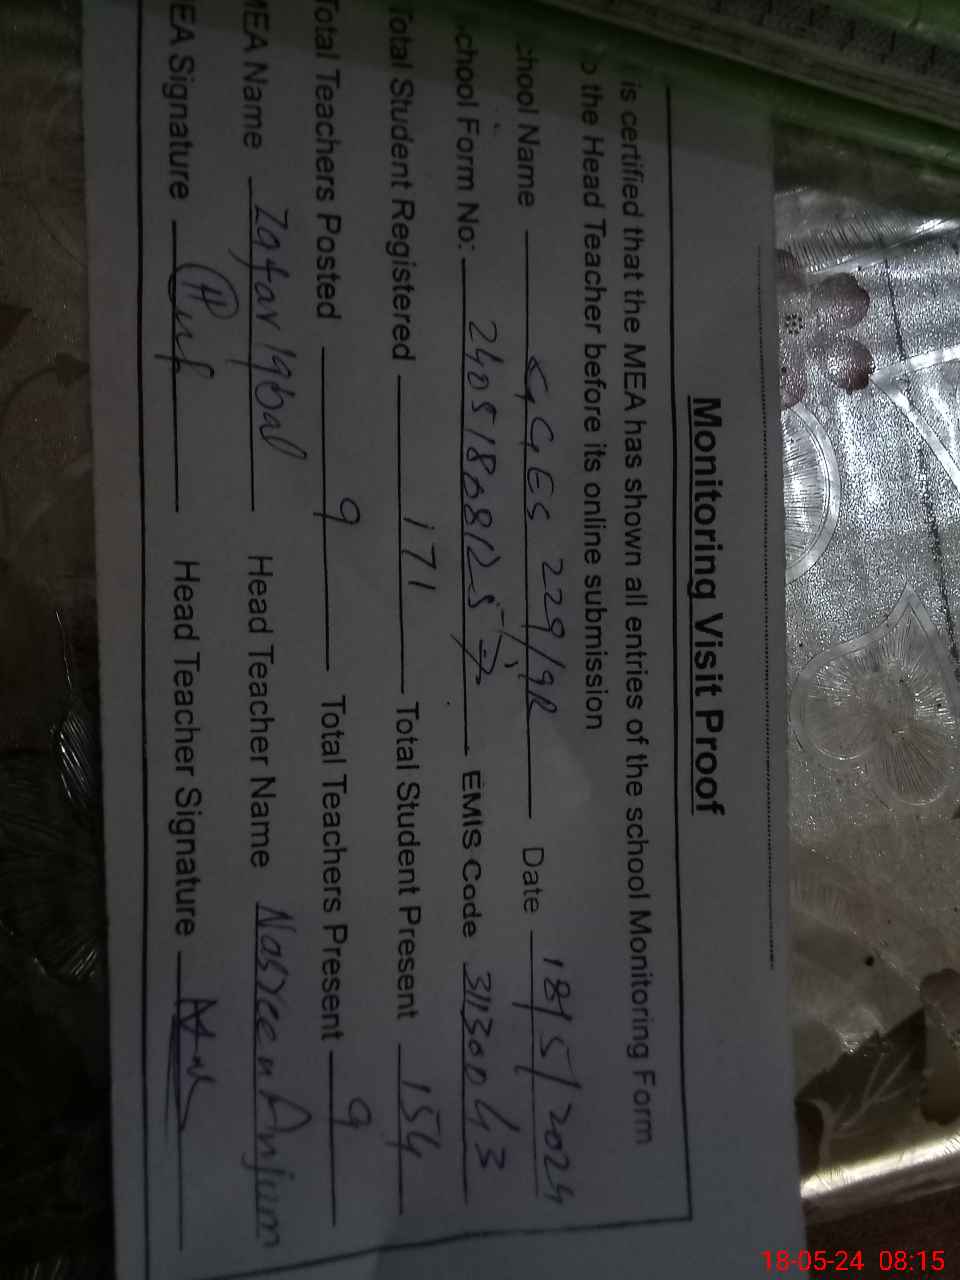 Monitoring Visit Proof
is certified that the MEA has shown all entries of the school Monitoring Form
o the Head Teacher before its online submission
chool Name GGES 229/9R Date 18/5/2024
chool Form No: EMIS Code 31130043
Total Student Registered 171 Total Student Present 154
Total Teachers Posted 9 Total Teachers Present 9
MEA Name Zafar Iqbal Head Teacher Name Nasreen Anjum
EA Signature Head Teacher Signature
18-05-24 08:15